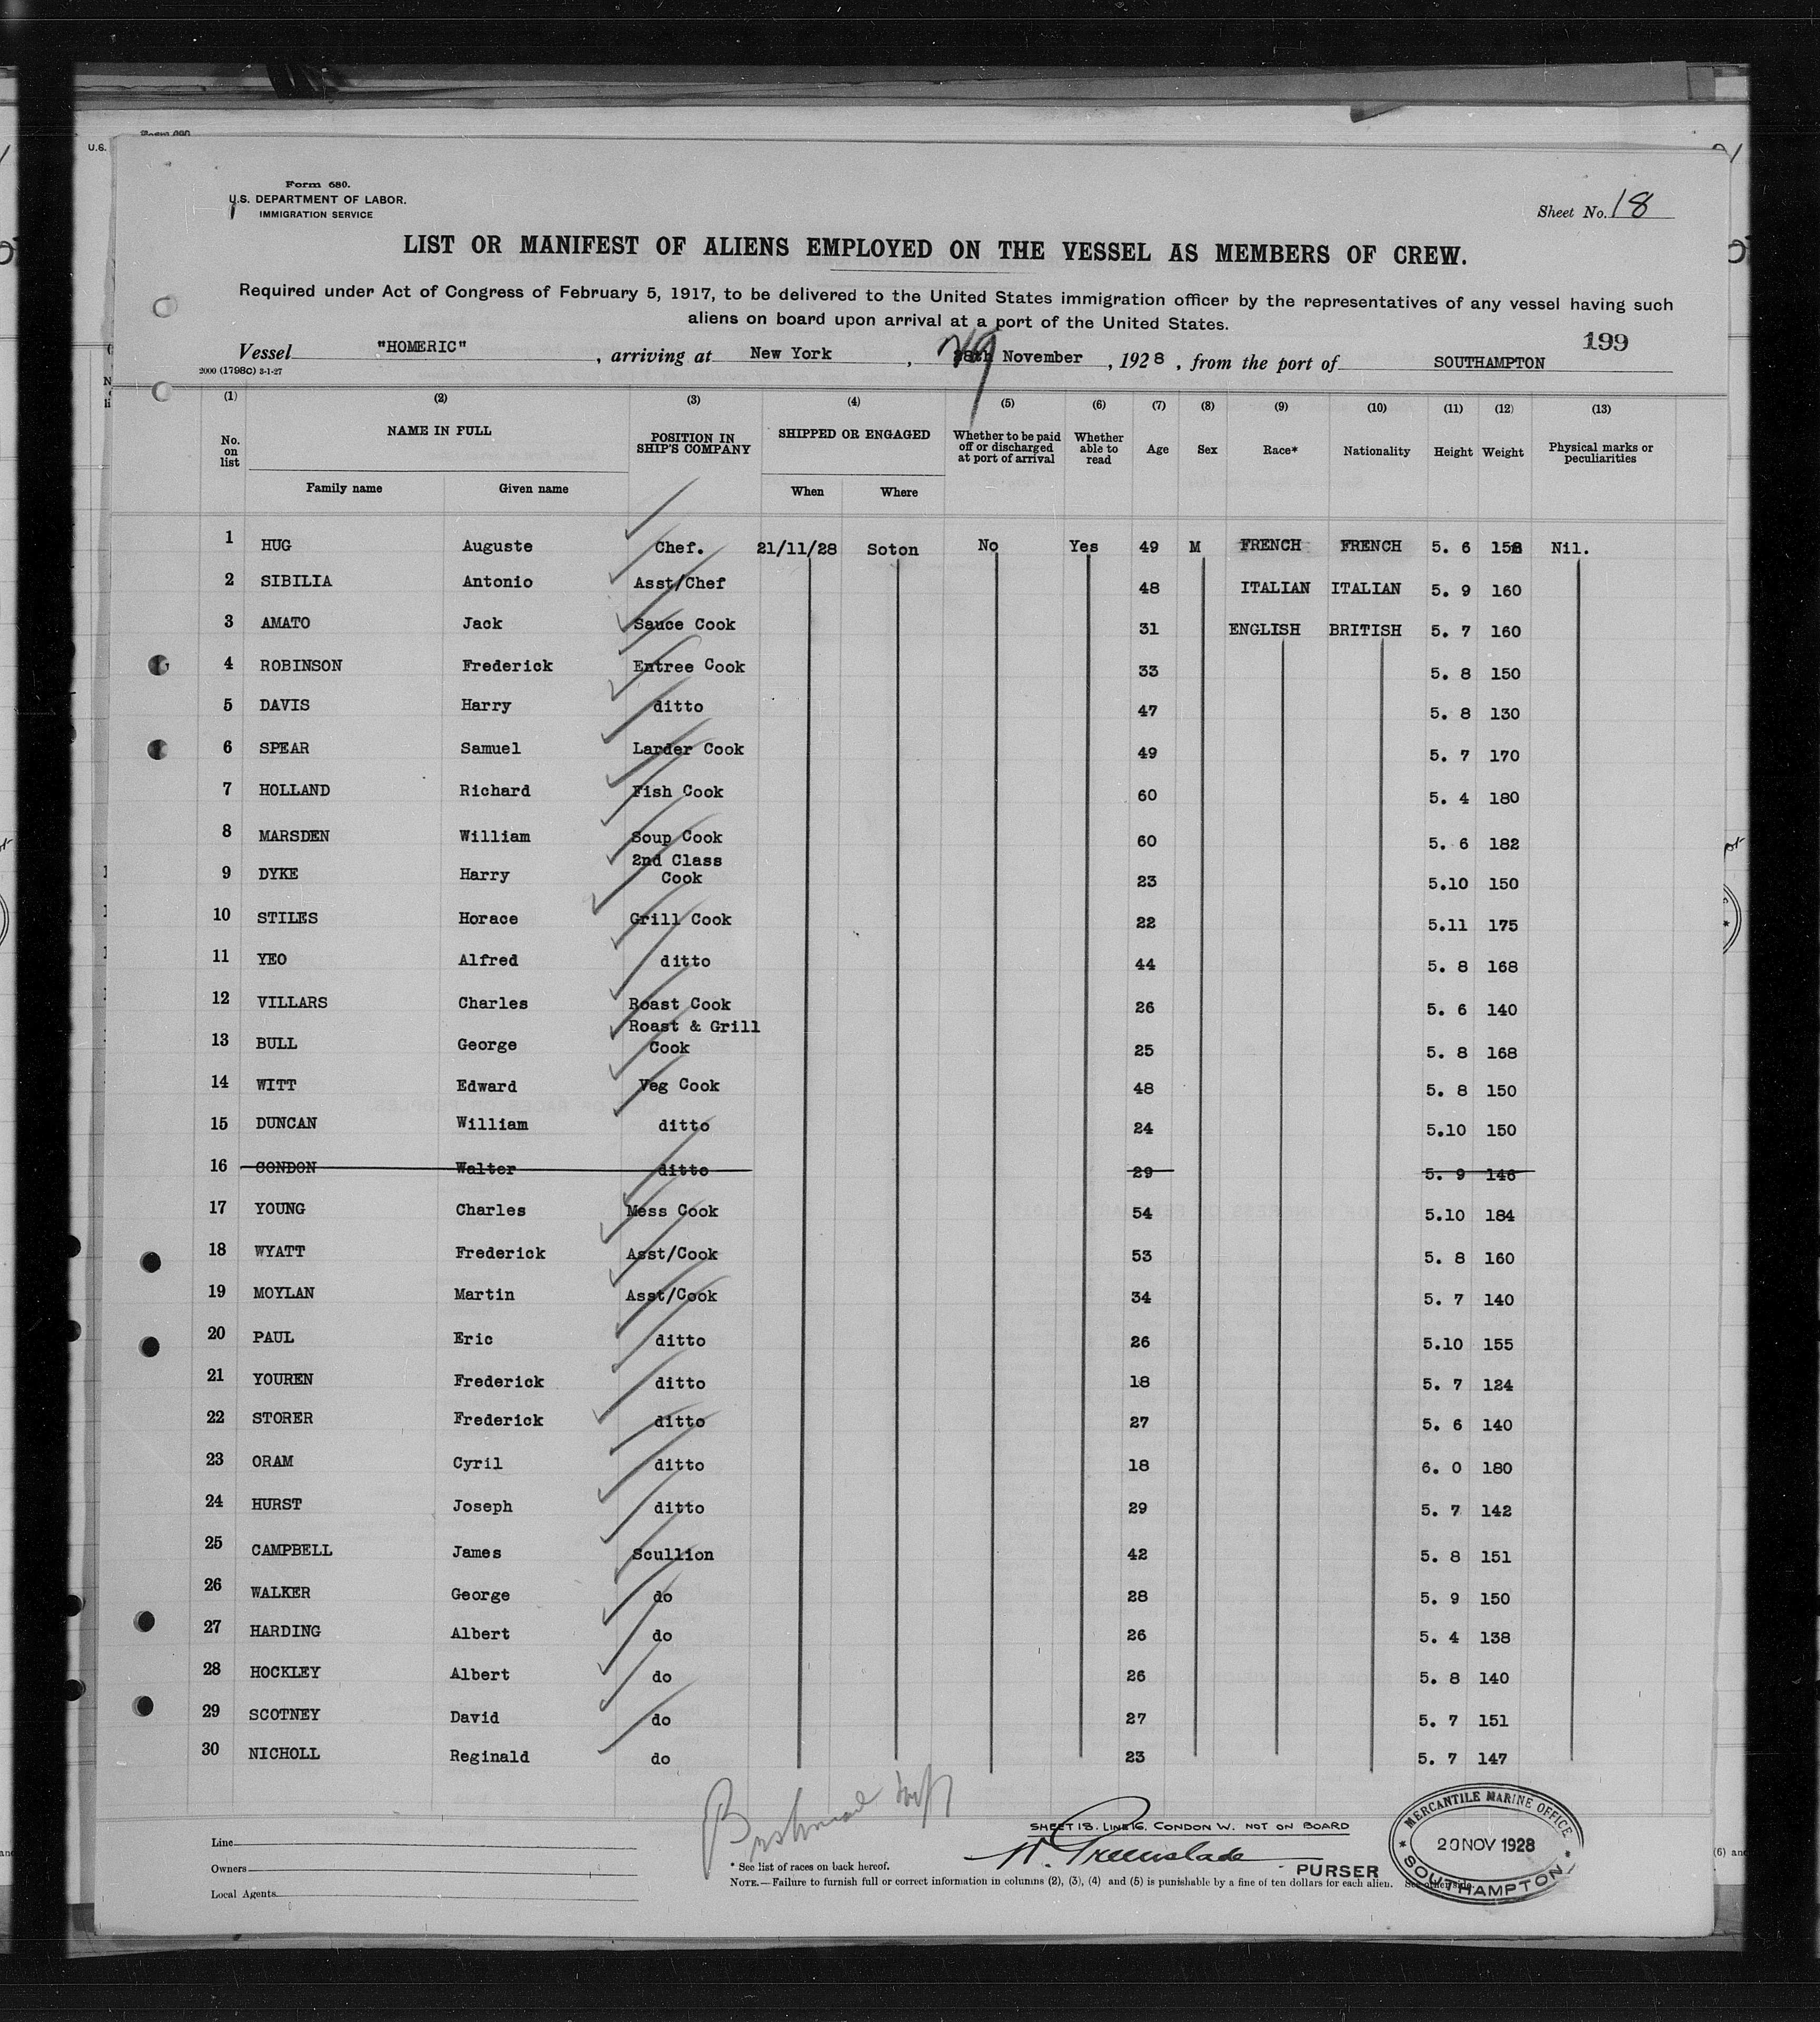 Form 680.
U.S. DEPARTMENT OF LABOR.
IMMIGRATION SERVICE
Sheet No. 18
LIST OR MANIFEST OF ALIENS EMPLOYED ON THE VESSEL AS MEMBERS OF CREW.
Required under Act of Congress of February 5, 1917, to be delivered to the United States immigration officer by the representatives of any vessel having such
aliens on board upon arrival at a port of the United States.
199
Vessel "HOMERIC", arriving at New York, 29 28th November, 1928, from the port of SOUTHAMPTON
2000 (1798c) 3-1-27
(1) (2) (3) (4) (5) (6) (7) (8) (9) (10) (11) (12) (13)
No. on list NAME IN FULL POSITION IN SHIP'S COMPANY SHIPPED OR ENGAGED Whether to be paid off or discharged at port of arrival Whether able to read Age Sex Race* Nationality Height Weight Physical marks or peculiarities
Family name Given name When Where
1 HUG Auguste Chef. 21/11/28 Soton No Yes 49 M FRENCH FRENCH 5. 6 158 Nil.
2 SIBILIA Antonio Asst/Chef 48 ITALIAN ITALIAN 5. 9 160
3 AMATO Jack Sauce Cook 31 ENGLISH BRITISH 5. 7 160
4 ROBINSON Frederick Entree Cook 33 5. 8 150
5 DAVIS Harry ditto 47 5. 8 130
6 SPEAR Samuel Larder Cook 49 5. 7 170
7 HOLLAND Richard Fish Cook 60 5. 4 180
8 MARSDEN William Soup Cook 60 5. 6 182
9 DYKE Harry 2nd Class Cook 23 5.10 150
10 STILES Horace Grill Cook 22 5.11 175
11 YEO Alfred ditto 44 5. 8 168
12 VILLARS Charles Roast Cook 26 5. 6 140
13 BULL George Roast & Grill Cook 25 5. 8 168
14 WITT Edward Veg Cook 48 5. 8 150
15 DUNCAN William ditto 24 5.10 150
16 CONDON Walter ditto 29 5. 9 146
17 YOUNG Charles Mess Cook 54 5.10 184
18 WYATT Frederick Asst/Cook 53 5. 8 160
19 MOYLAN Martin Asst/Cook 34 5. 7 140
20 PAUL Eric ditto 26 5.10 155
21 YOUREN Frederick ditto 18 5. 7 124
22 STORER Frederick ditto 27 5. 6 140
23 ORAM Cyril ditto 18 6. 0 180
24 HURST Joseph ditto 29 5. 7 142
25 CAMPBELL James Scullion 42 5. 8 151
26 WALKER George do 28 5. 9 150
27 HARDING Albert do 26 5. 4 138
28 HOCKLEY Albert do 26 5. 8 140
29 SCOTNEY David do 27 5. 7 151
30 NICHOLL Reginald do 23 5. 7 147
SHEET 18. LINE 16. CONDON W. NOT ON BOARD
Greenslade PURSER
MERCANTILE MARINE OFFICE
20 NOV 1928
SOUTHAMPTON
Line
Owners
Local Agents
* See list of races on back hereof.
NOTE.—Failure to furnish full or correct information in columns (2), (3), (4) and (5) is punishable by a fine of ten dollars for each alien. See other side.